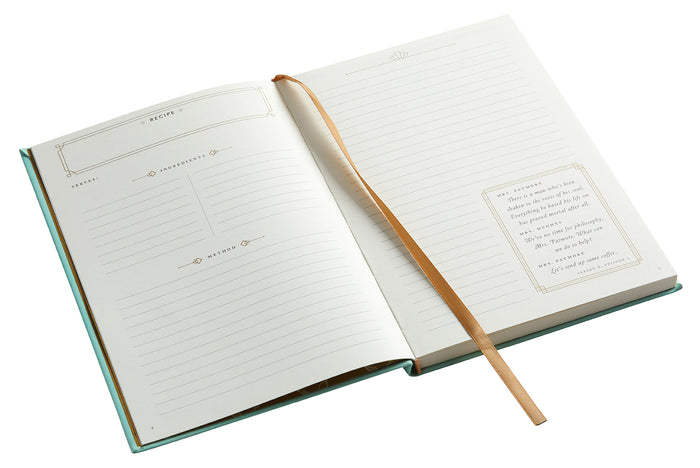 RECIPE
SERVES:
INGREDIENTS
METHOD
MRS. PATMORE
There is a man who's been
shaken to the roots of his soul.
Everything he based his life on
has proved mortal after all.
MRS. HUGHES
We've no time for philosophy,
Mrs. Patmore. What can
we do to help?
MRS. PATMORE
Let's send up some coffee.